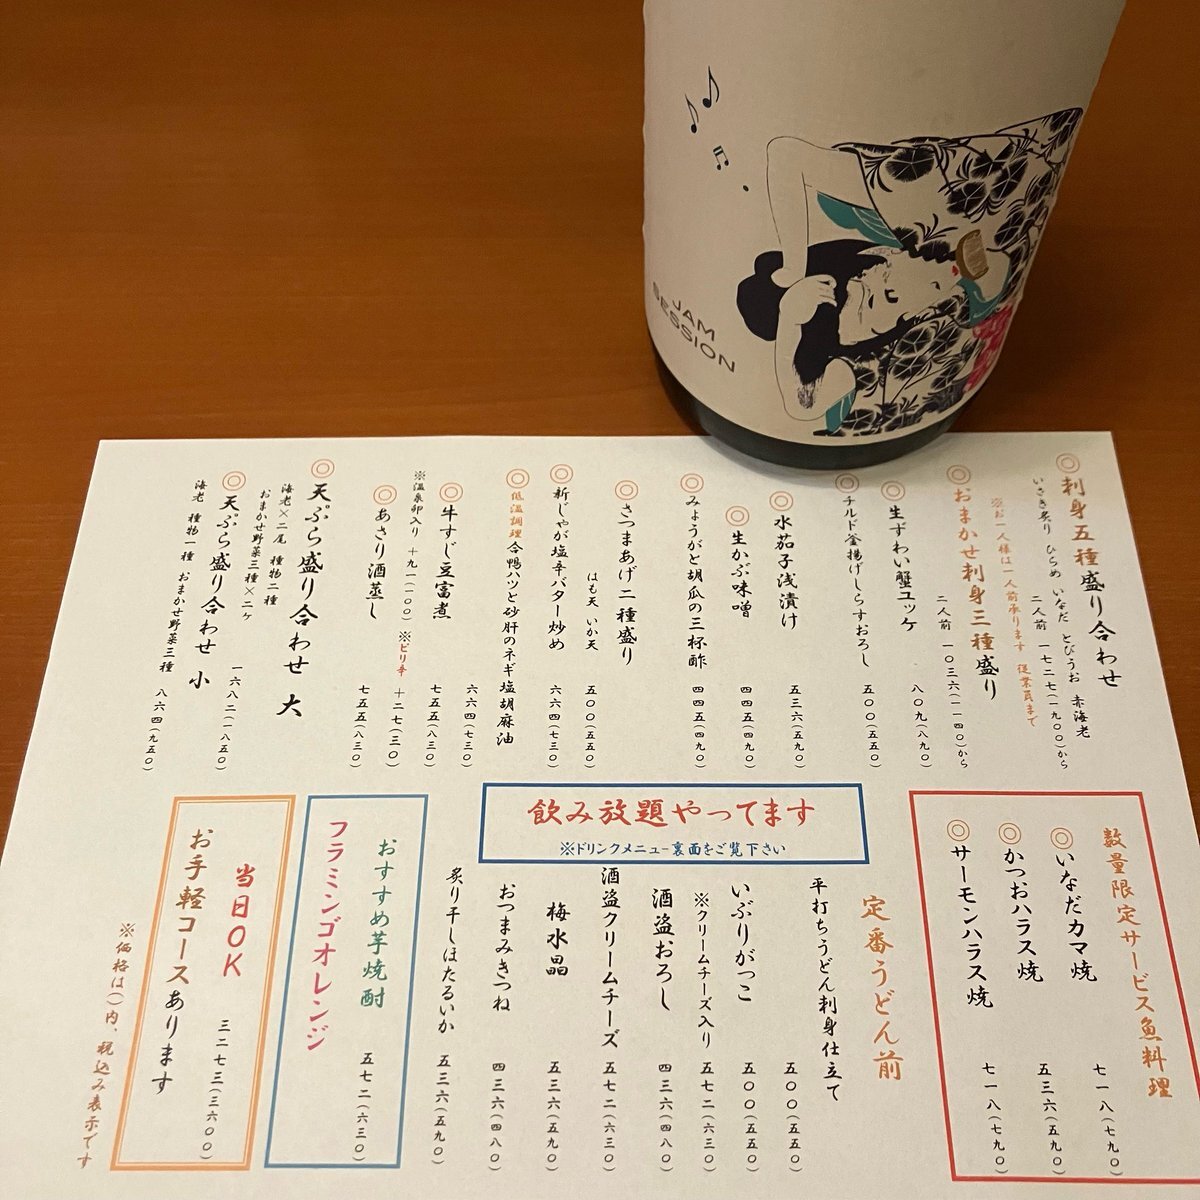 JAM
SESSION
◎刺身五種盛り合わせ
いさき炙り ひらめ いなだ とびうお 赤海老
二人前 一七二七(一九〇〇)から
※お一人様は一人前承ります 従業員まで
◎おまかせ刺身三種盛り
二人前 一〇三六(一一四〇)から
◎生ずわい蟹ユッケ 八〇九(八九〇)
◎チルド釜揚げしらすおろし 五〇〇(五五〇)
◎水茄子浅漬け 五三六(五九〇)
◎生かぶ味噌 四四五(四九〇)
◎みょうがと胡瓜の三杯酢 四四五(四九〇)
◎さつまあげ二種盛り
はも天 いか天 五〇〇(五五〇)
◎新じゃが塩辛バター炒め 六六四(七三〇)
◎低温調理合鴨ハツと砂肝のネギ塩胡麻油 六六四(七三〇)
◎牛すじ豆富煮 七五五(八三〇)
※温泉卵入り +九一(一〇〇) ※ピリ辛 +二七(三〇)
◎あさり酒蒸し 七五五(八三〇)
◎天ぷら盛り合わせ 大
海老×二尾 種物二種
おまかせ野菜三種×二ケ 一六八二(一八五〇)
◎天ぷら盛り合わせ 小
海老 種物一種 おまかせ野菜三種 八六四(九五〇)
数量限定サービス魚料理
◎いなだカマ焼 七一八(七九〇)
◎かつおハラス焼 五三六(五九〇)
◎サーモンハラス焼 七一八(七九〇)
飲み放題やってます
※ドリンクメニュー裏面をご覧下さい
定番うどん前
平打ちうどん刺身仕立て 五〇〇(五五〇)
いぶりがっこ 五〇〇(五五〇)
※クリームチーズ入り 五七二(六三〇)
酒盗おろし 四三六(四八〇)
酒盗クリームチーズ 五七二(六三〇)
梅水晶 五三六(五九〇)
おつまみきつね 四三六(四八〇)
炙り干しほたるいか 五三六(五九〇)
おすすめ芋焼酎
フラミンゴオレンジ
五七二(六三〇)
当日OK
お手軽コースあります
三二七三(三六〇〇)
※価格は()内、税込み表示です